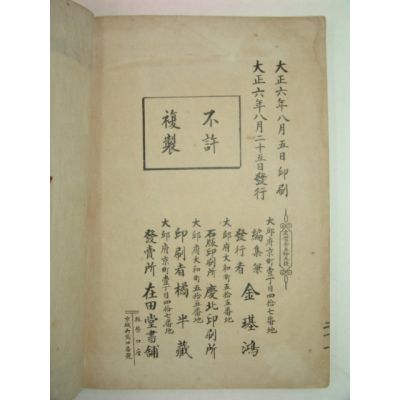 大正六年八月五日印刷
大正六年八月二十五日發行
不許
複製
大邱府京町壹丁目四拾七番地
編集兼
發行者 金璂鴻
大邱府大和町五拾五番地
石版印刷所 慶北印刷所
大邱府大和町五拾五番地
印刷者 橘半藏
大邱府京町壹丁目四拾七番地
發賣所 在田堂書鋪
振替口座